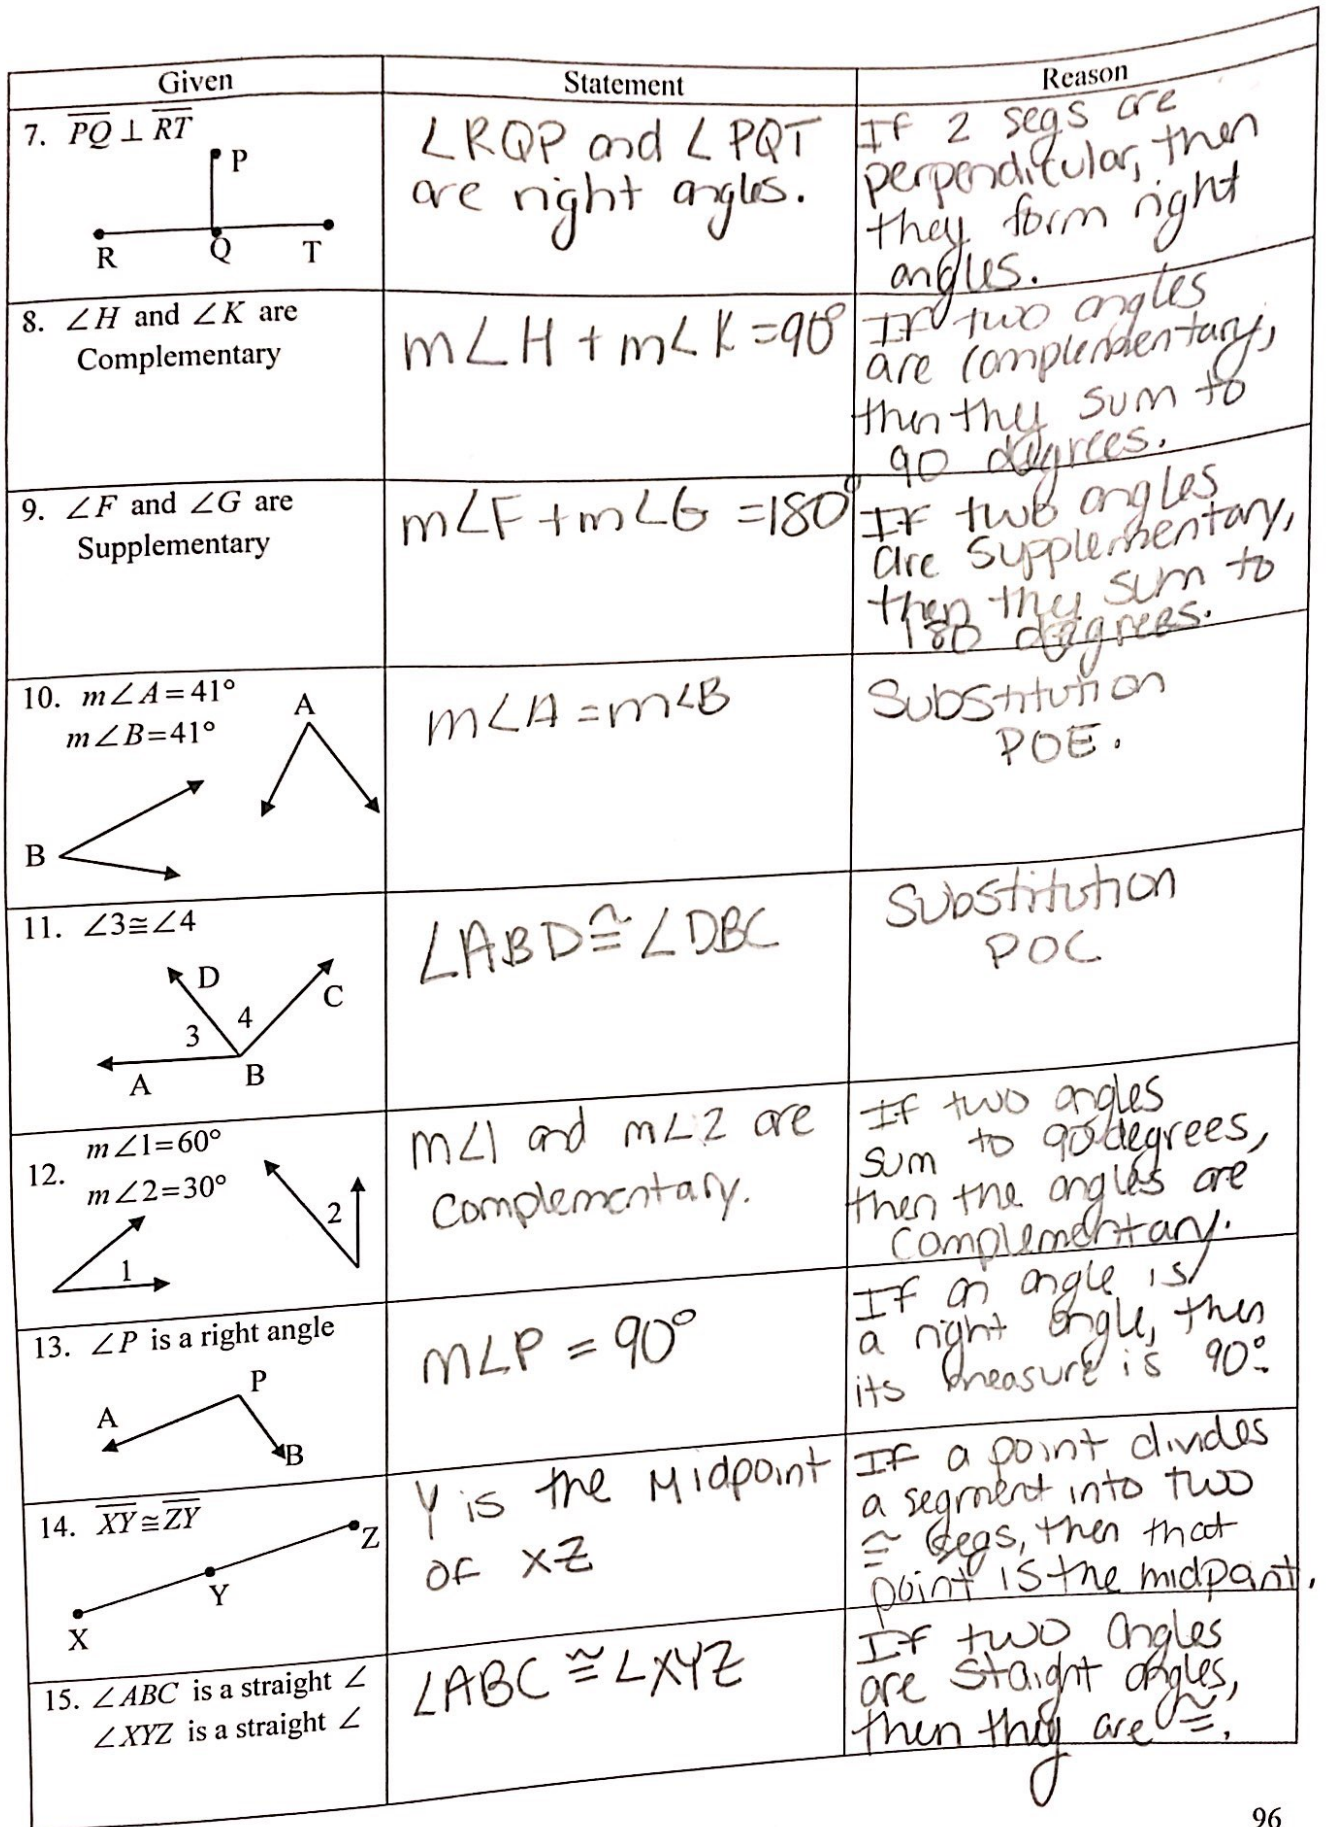 Given
Statement
Reason
7. PQ ⊥ RT
P
R
Q
T
∠RQP and ∠PQT
are right angles.
If 2 segs are
perpendicular, then
they form right
angles.
8. ∠H and ∠K are
Complementary
m∠H + m∠K = 90°
If two angles
are complementary,
then they sum to
90 degrees.
9. ∠F and ∠G are
Supplementary
m∠F + m∠G = 180°
If two angles
are supplementary,
then they sum to
180 degrees.
10. m∠A = 41°
m∠B = 41°
A
B
m∠A = m∠B
Substitution
POE.
11. ∠3 ≅ ∠4
D
C
3
4
A
B
∠ABD ≅ ∠DBC
Substitution
POC
12.
m∠1=60°
m∠2=30°
2
1
m∠1 and m∠2 are
complementary.
If two angles
sum to 90 degrees,
then the angles are
complementary.
13. ∠P is a right angle
P
A
B
m∠P = 90°
If an angle is
a right angle, then
its measure is 90°.
14. XY ≅ ZY
Z
Y
X
Y is the Midpoint
of XZ
If a point divides
a segment into two
≅ segs, then that
point is the midpoint.
15. ∠ABC is a straight ∠
∠XYZ is a straight ∠
∠ABC ≅ ∠XYZ
If two angles
are staight angles,
then they are ≅.
96